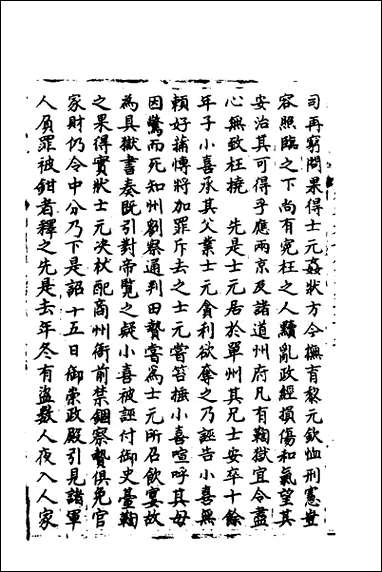 司再窮問果得士元姦狀方今撫育黎元欽恤刑憲豈
容照臨之下尚有冤枉之人黷亂政經損傷和氣望其
安治其可得乎應兩京及諸道州府凡有鞫獄宜令盡
心無致枉撓 先是士元居於單州其兄士安卒十餘
年子小喜承其父業士元貪利欲奪之乃誣告小喜無
頼好蒱博將加罪斥去之士元嘗笞捶小喜喧呼其母
因驚而死知州劉察通判田贄嘗爲士元所召飲宴故
為具獄書奏既引對帝覽之疑小喜被誣付御史臺鞫
之果得實狀士元决杖配商州衙前禁錮察贄俱免官
家財仍令中分乃下是詔十五日御崇政殿引見諸軍
人負罪被鉗者釋之先是去年冬有盜數人夜入人家